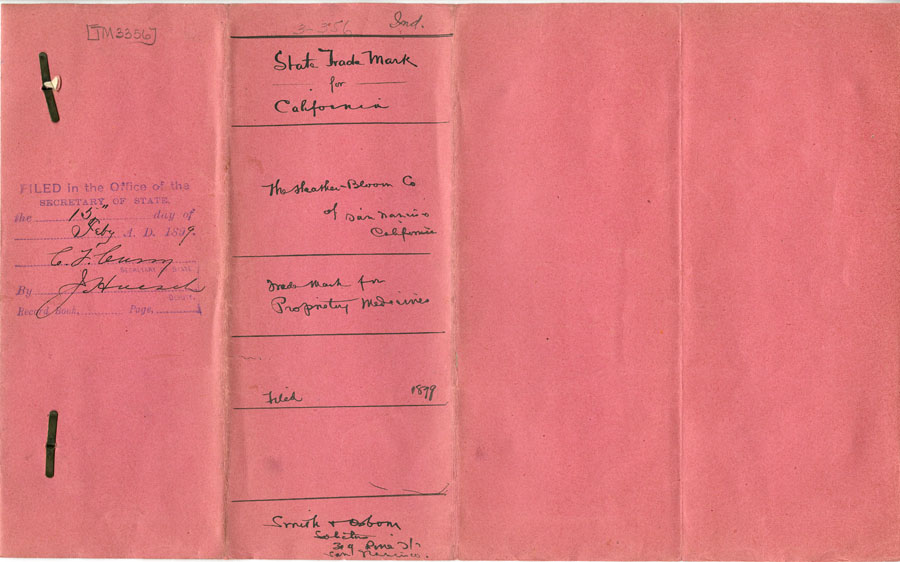 [TM3356]
FILED in the Office of the
SECRETARY OF STATE.
the 15" day of
Feby A. D. 1899.
C. F. Curry
SECRETARY OF STATE
By J. Hoesch
Record Book, Page,
3356 Ind.
State Trade Mark
for
California
The Heather-Bloom Co
of San Francisco
California
Trade Mark for
Proprietary Medicines
Filed 1899
Smith & Osborn
Solicitors
309 Pine St
San Francisco.